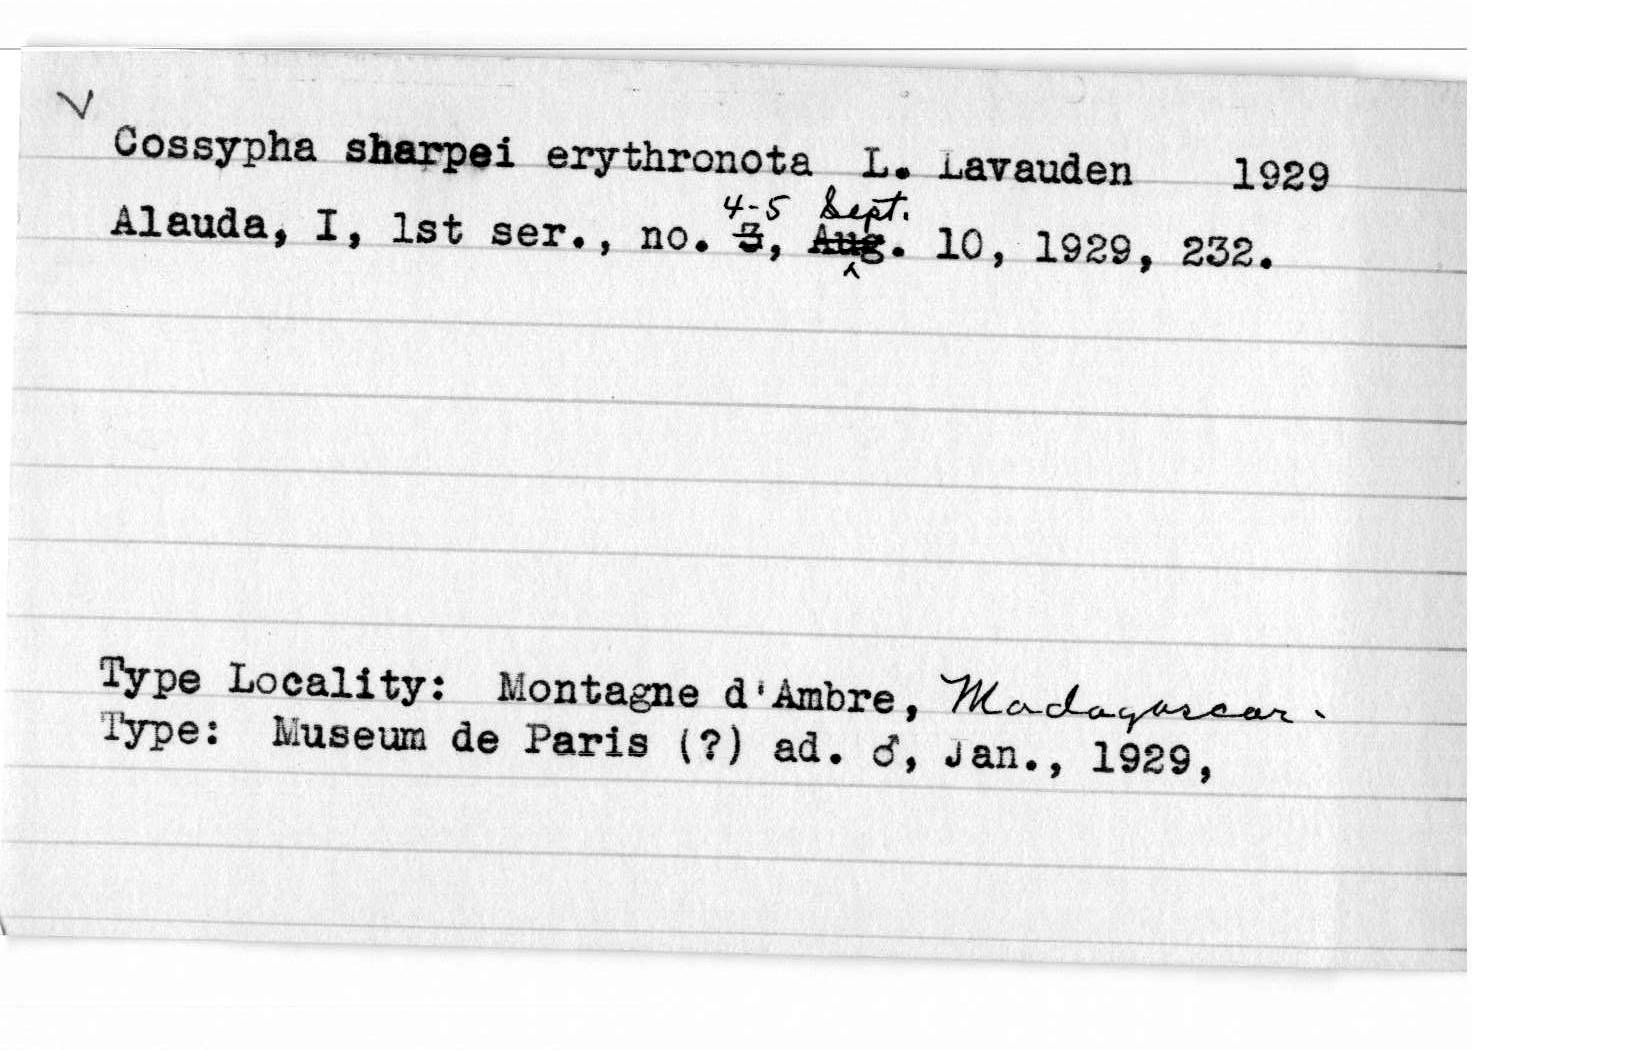 ✓
Cossypha sharpei erythronota L. Lavauden 1929
4-5 Sept.
Alauda, I, 1st ser., no. 3, Aug. 10, 1929, 232.
Type Locality: Montagne d'Ambre, Madagascar.
Type: Museum de Paris (?) ad. ♂, Jan., 1929,